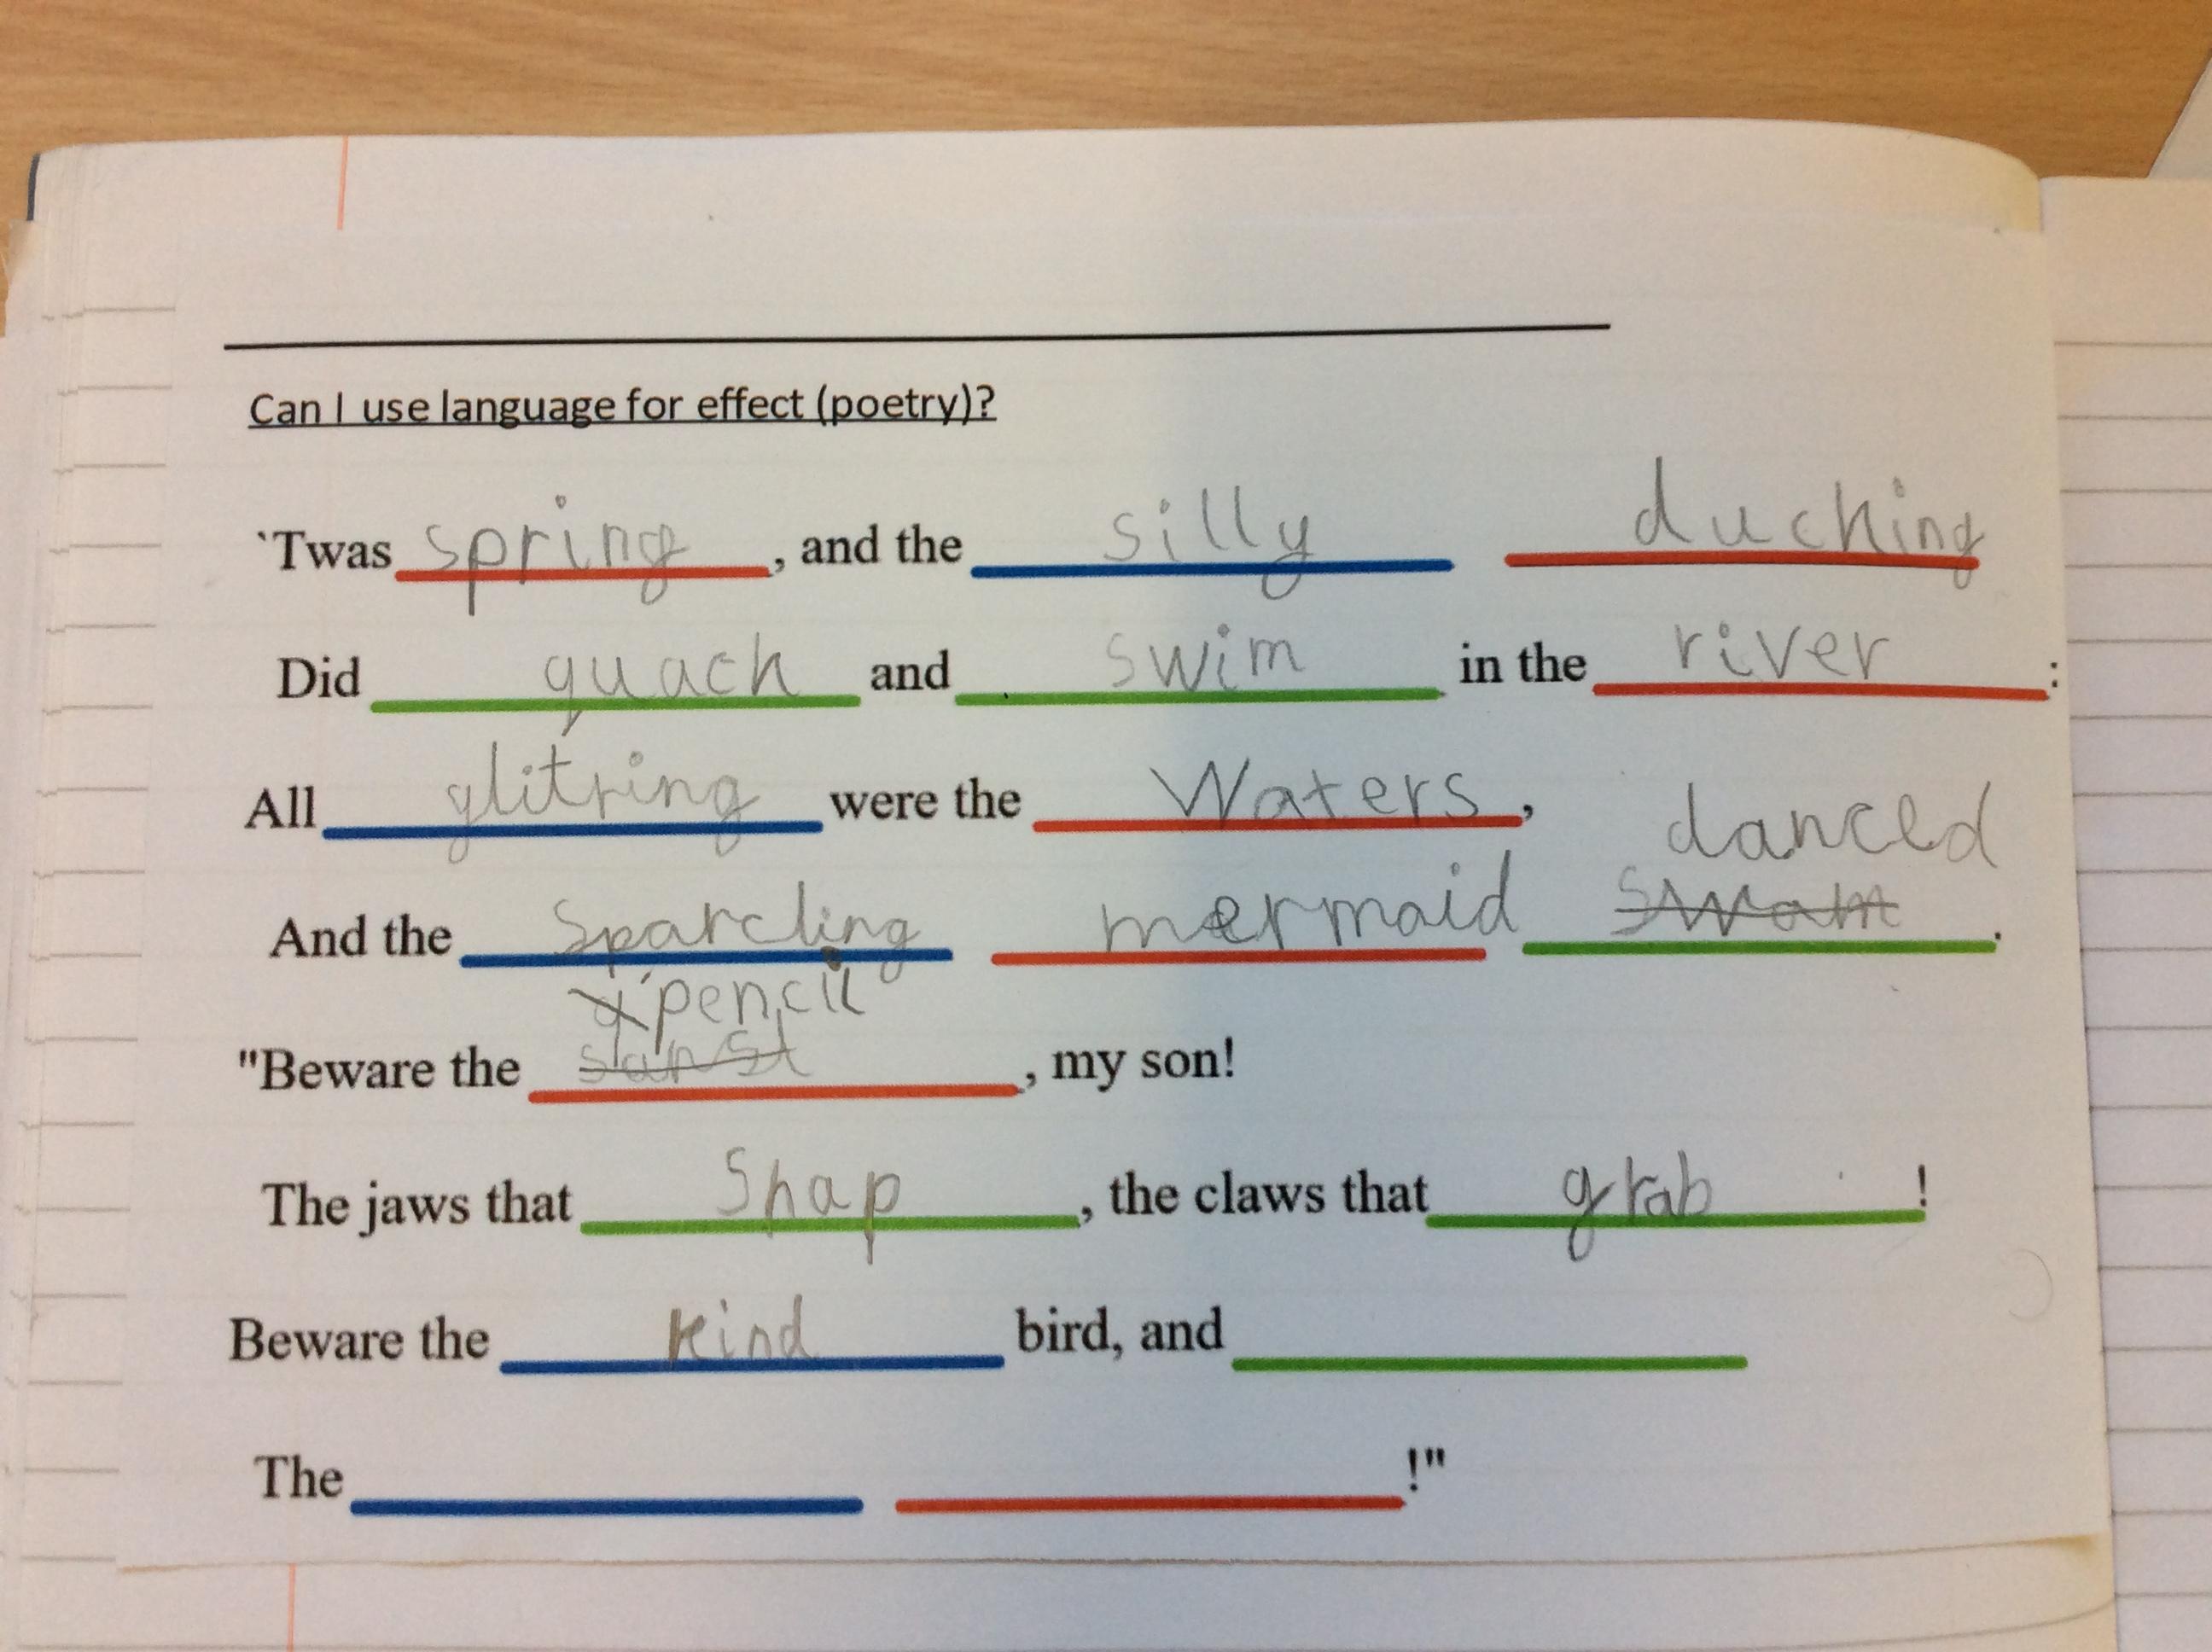 Can I use language for effect (poetry)?
`Twas spring, and the silly ducking
Did quack and swim in the river:
All glitring were the Waters,
danced
And the sparcling mermaid swam.
pencil
"Beware the, my son!
The jaws that Snap, the claws that grab!
Beware the kind bird, and
The !"